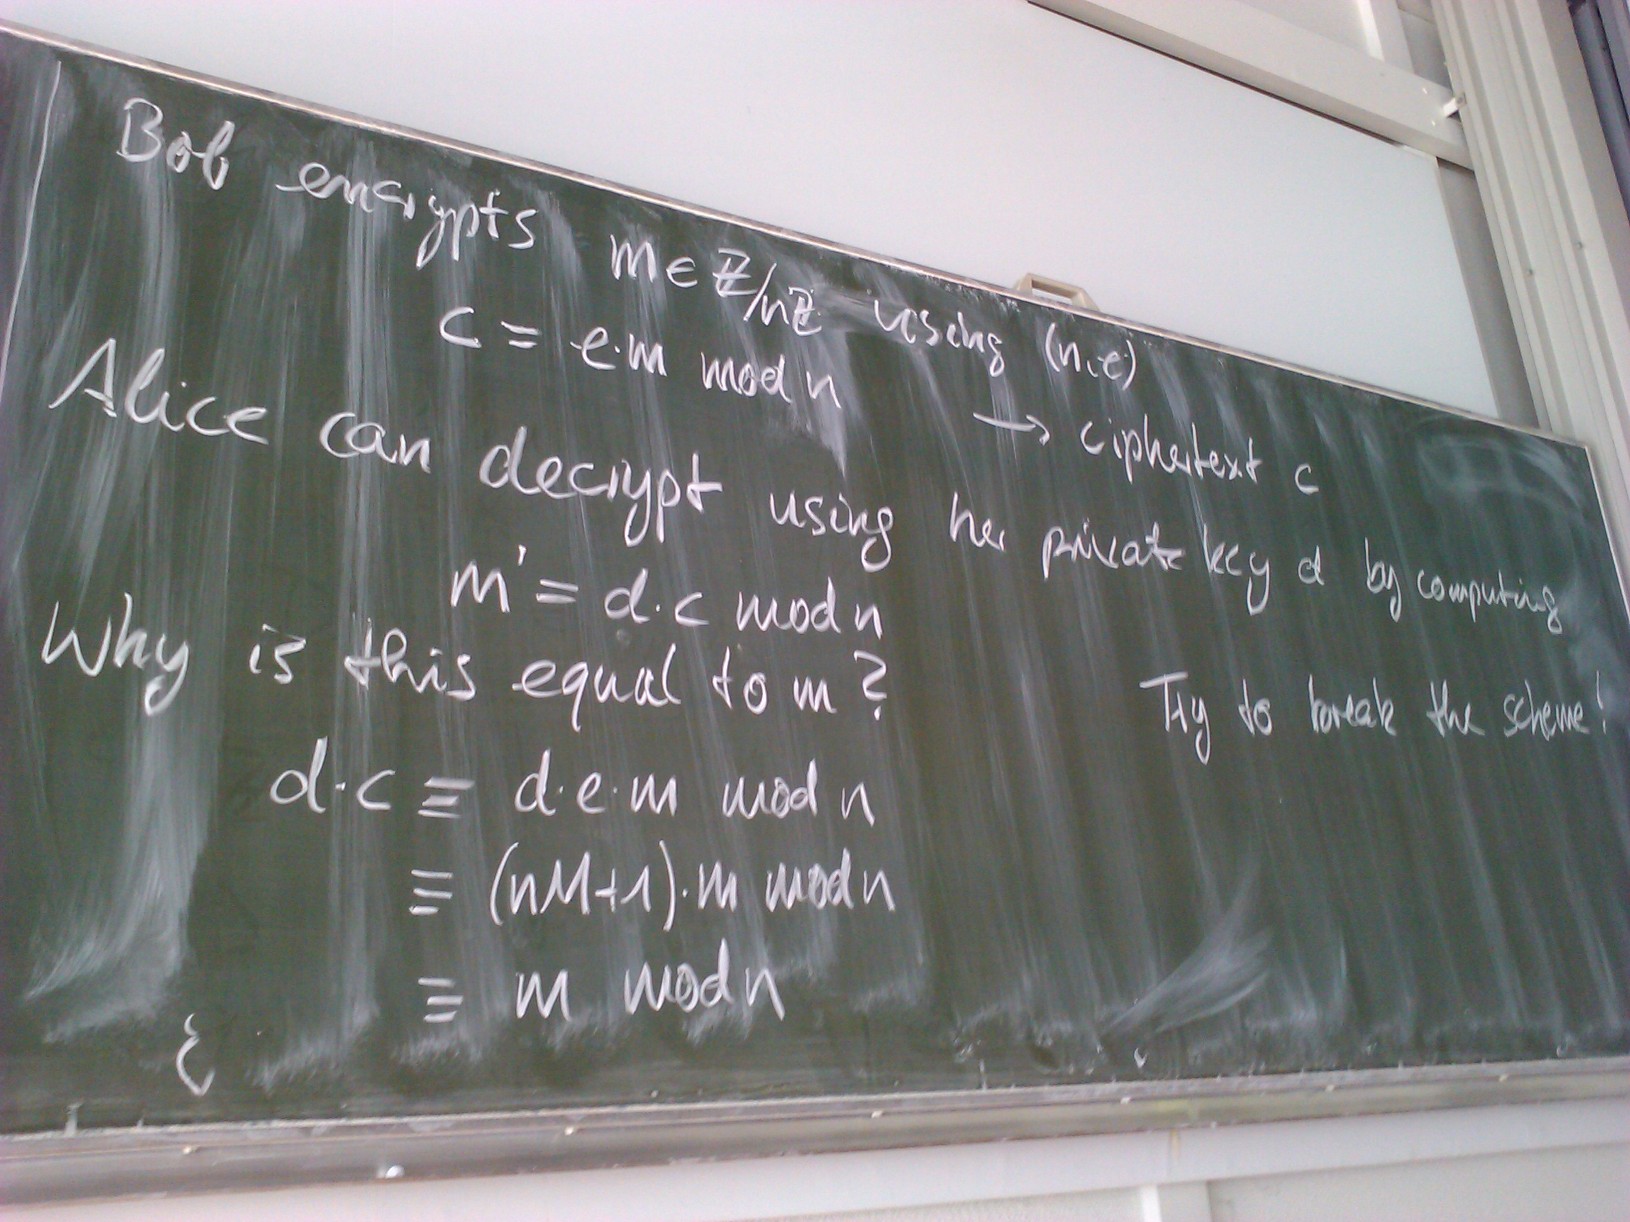 Bob encrypts m ∈ ℤ/nℤ using (n,e)
c = e·m mod n → ciphertext c
Alice can decrypt using her private key d by computing
m' = d·c mod n
Why is this equal to m?
Try to break the scheme!
d·c ≡ d·e·m mod n
≡ (nM+1)·m mod n
≡ m mod n